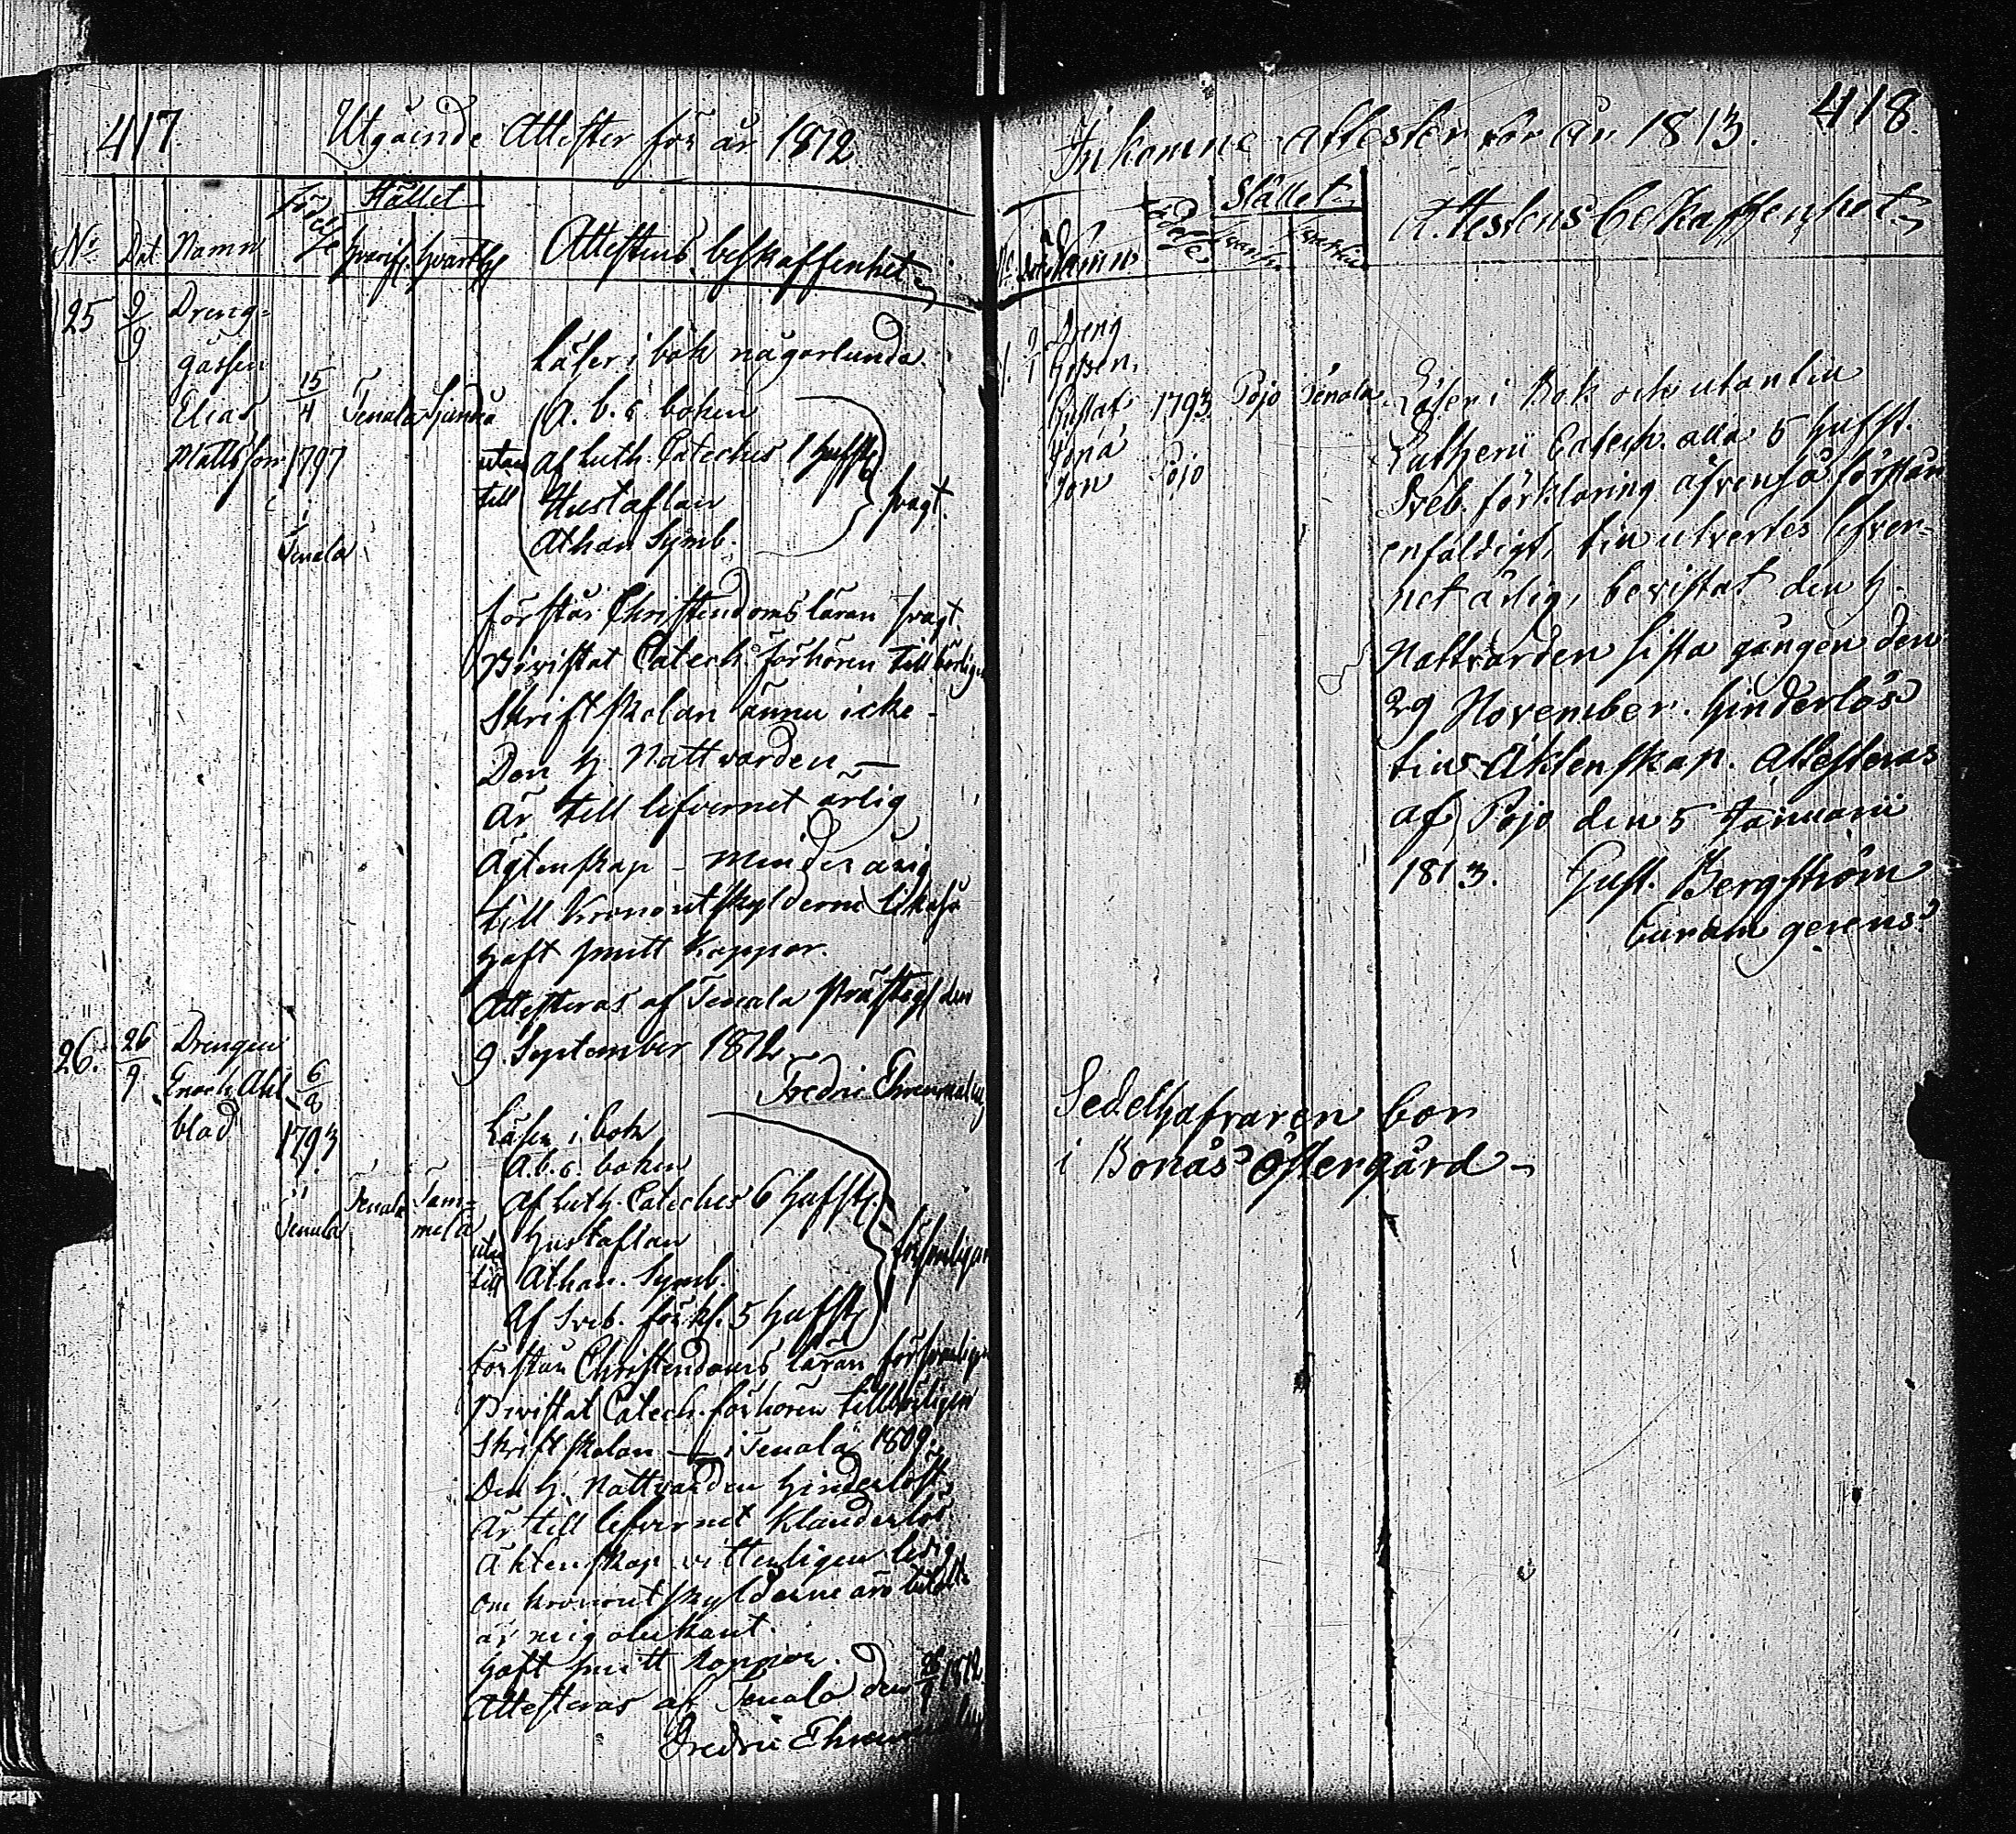 417.
Utgående Attester för år 1812
Stället
No Dat Namn Födelse hvarifr. hvarthän Attestens beskaffenhet
25 9/9 Dreng-
gossen
Elias 15/4 Tenala Sjundå
Mattsson 1797
i
Tenala
Läser i bok någorlunda
A. b. c. boken
utan af Luth. Cateches 1 Hufst.
till Hustaflan svagt.
Athan. Symb.
förstår Christendoms läran svagt
Bivistat Catech. förhören tillbörligen
Skriftskolan ännu icke
Den H. Nattvarden —
Är till lefvernet ärlig
Ägtenskap - minderårig
till Kronoutskylderne likaså
haft smitt koppor.
Attesteras af Tenala Prästegd den
9 September 1812
Fredric Ehrenmalm
26. 26/9 Drengen
Enoch Ahl- 6/2
blad 1793
i
Tenala Tenala Tam-
mela
Läser i bok
A. b. c. boken
Af Luth. Cateches 6 Hufst.
utan Hustaflan försvarligen
till Athan. Symb.
Af Sveb. förkl. 5 Hufst
förstår Christendoms läran försvarligen
Bivistat Catech. förhören tillbörligen
Skriftskolan — i Tenala 1809.
Den H. Nattvarden hinderlöst
Är till lefvernet klanderlös
Äktenskap vitterligen ledig
om kronoutskylderne äro betalte
är mig obekant.
haft smitt koppor.
Attesteras af Tenala den 26/9 1812
Fredric
418.
Inkomne attester för år 1813.
Stället
No Dat Namn Födelse hvarifr. hvarthän Attestens beskaffenhet
1. 9/1 Dreng
Gossen
Gustaf 1793 Pojo Tenala
Jona
son Pojo
Läser i Bok och utantill
Lutheri Catech. alla 5 Hufst.
Sveb. förklaring äfvenså förstår
enfaldigt, till utvertes lefver-
net ärlig, bevistat den H.
Nattvarden sista gången den
29 November. hinderlös
till Äktenskap. Attesteras
af Pojo den 5 Januarii
1813. Gust. Bergström
Curam gerens
Sedelhafvaren bor
i Bonäs Östergård